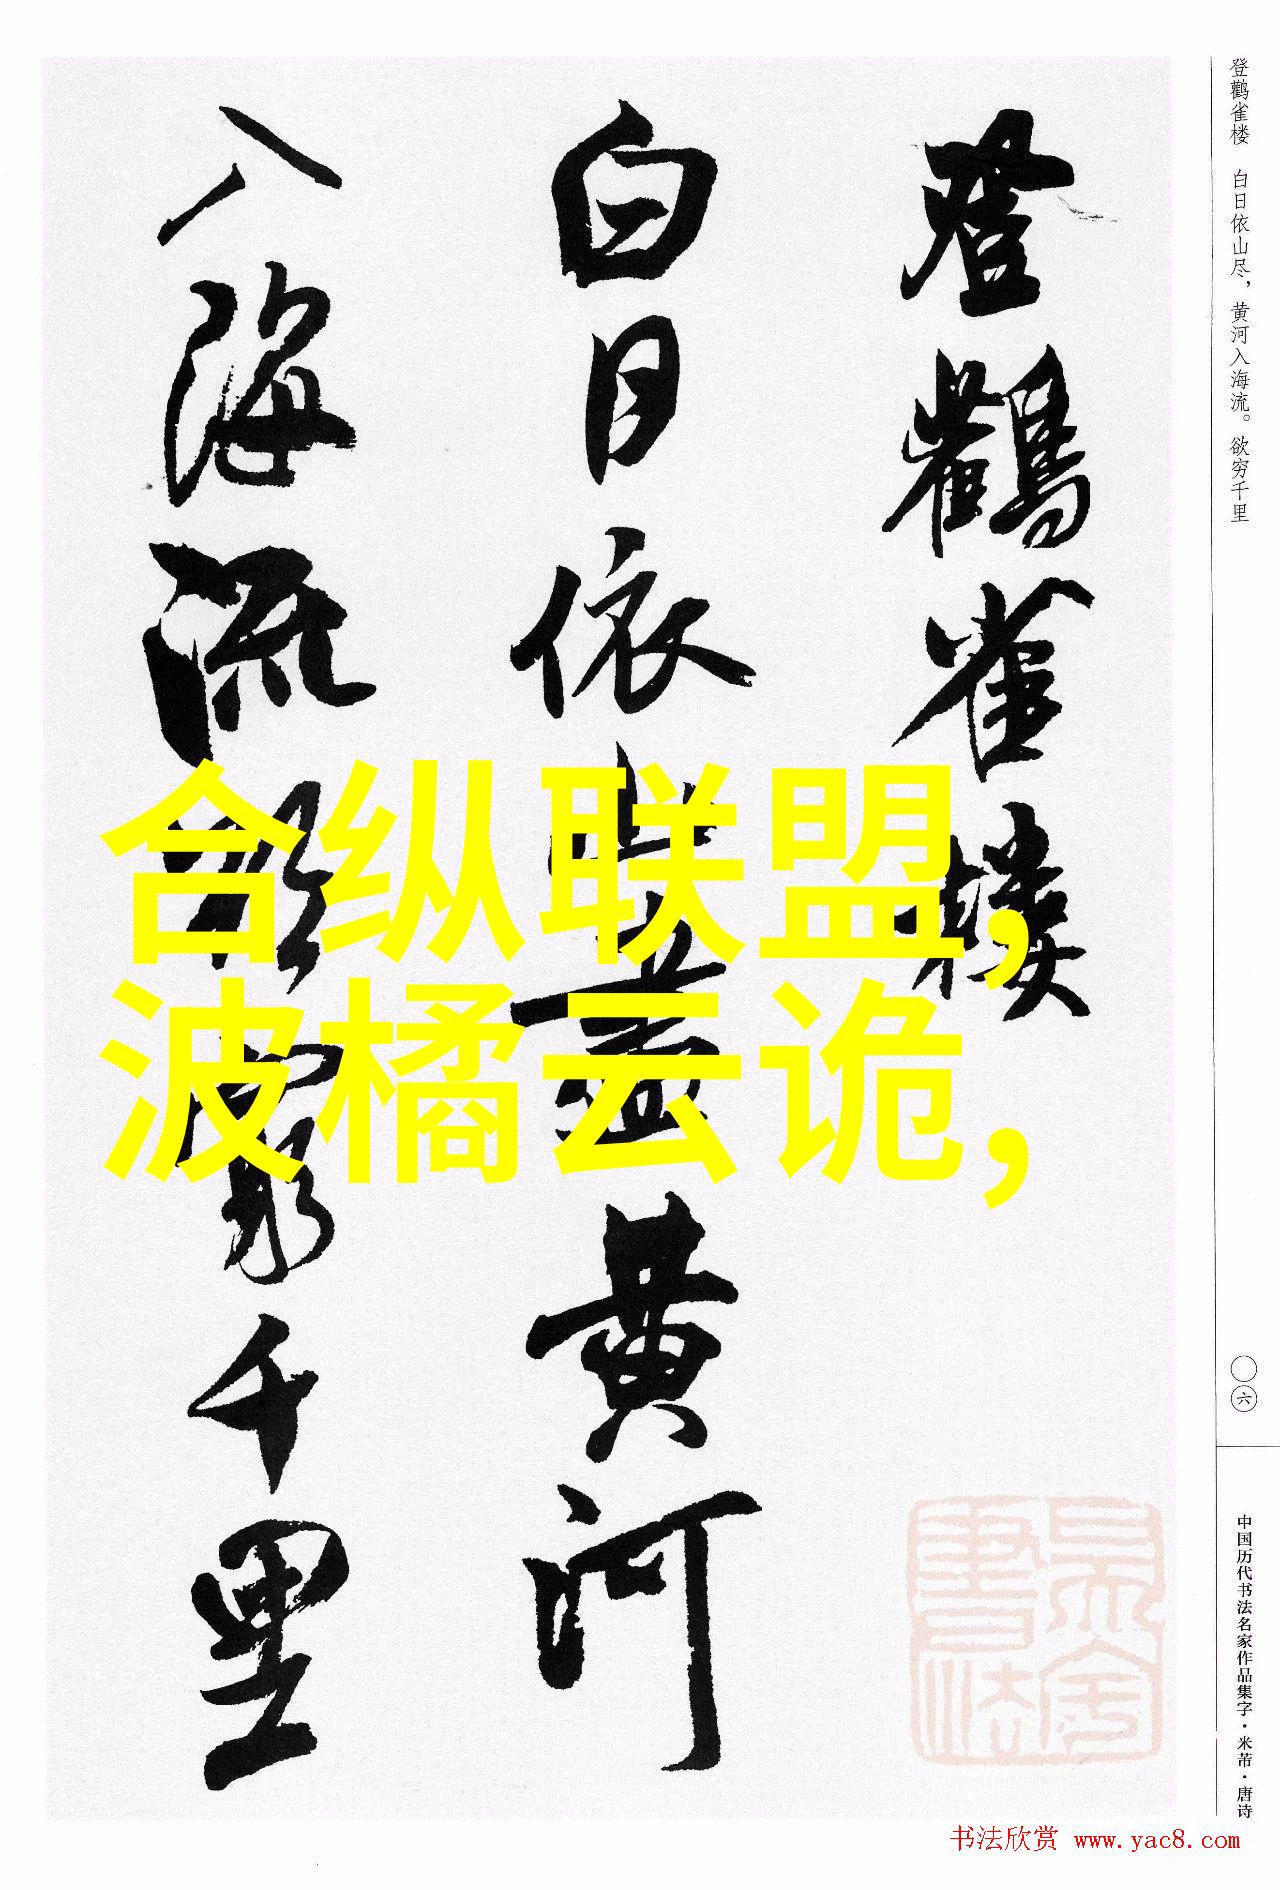 登鹳雀楼
白日依山尽黄河
入海流欲穷千里
合纵联盟,
波橘云诡,
登鹳雀楼 白日依山尽，黄河入海流。欲穷千里
〇六
中国历代书法名家作品集字·米芾·唐诗
书法欣赏 www.yac8.com